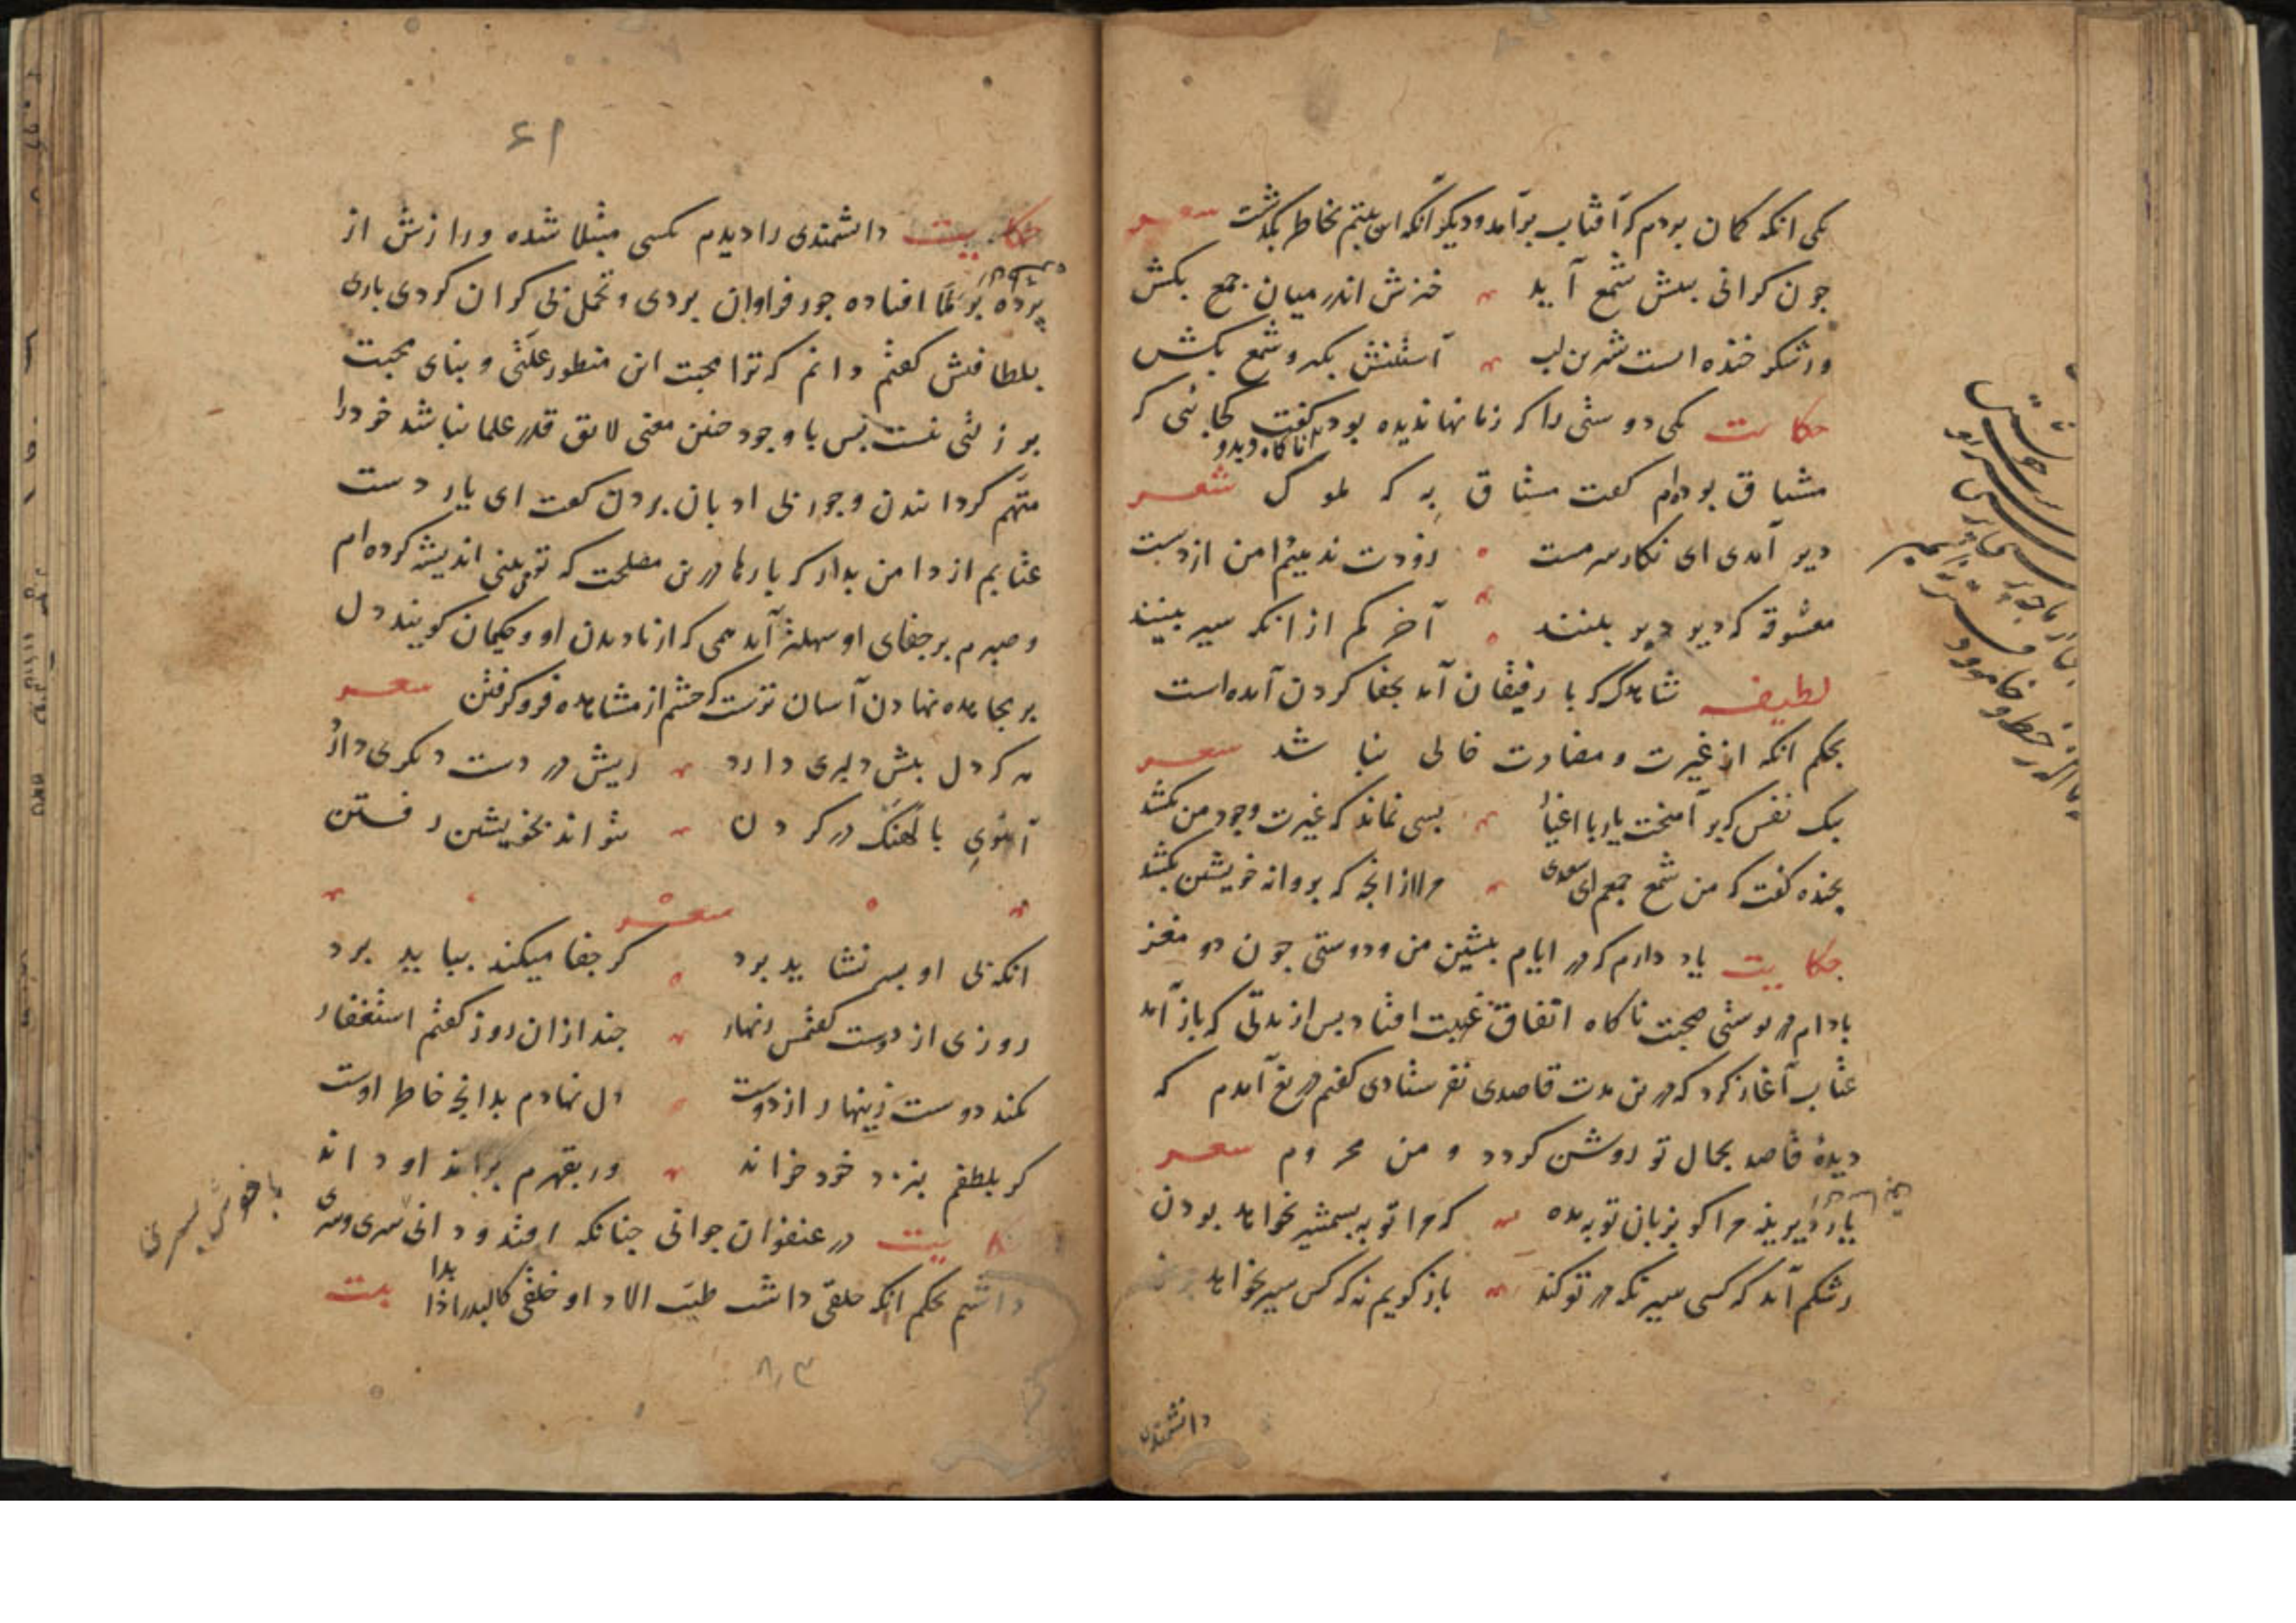 یکی انکه کمان بردم که آفتاب برآمد و دیگر آنکه این بیتم بخاطر بگذشت شعر
جون کرانی ببیش شمع آید خیزش اندر میان جمع بکش
ور شکر خنده است شیرین لب آستینش بکیر و شمع بکش
حکایت یکی دوستی را که زمانها ندیده بود ناکاه دیدو کفت کجائی که
مشتاق بوده‌ام کفت مشتاق به که ملول شعر
دیر آمدی ای نکار سرمست زودت ندهیم دامن از دست
معشوقه که دیر دیر بینند آخر کم از انکه سیر بینند
لطیفه شاهد که با رفیقان آید بجفا کردن آمده است
بحکم انکه از غیرت و مضادت خالی نباشد شعر
بیک نفس که بر آمیخت یار با اغیار بسی نماند که غیرت وجود من بکشد
بخنده کفت که من شمع جمعم ای سعدی مرا از انجه که بروانه خویشتن بکشد
حکایت یاد دارم که در ایام بیشین من و دوستی جون دو مغز
بادام در پوستی صحبت داشتیم ناکاه اتفاق غیبت افتاد بس از مدتی که باز آمد
عتاب آغاز کرد که درین مدت قاصدی نفرستادی کفتم دریغ آمدم که
دیدهٔ قاصد بجمال تو روشن کردد و من محروم شعر
یار دیرینه مرا کو بزبان توبه مده که مرا توبه بشمشیر نخواهد بودن
رشکم آید که کسی سیر نکه در تو کند باز کویم نه که کس سیر نخواهد بودن
دانشمندی
۶۱
حکایت دانشمندی را دیدم بکسی مبتلا شده و رازش از
پرده برملا افتاده جور فراوان بردی و تحمل بی کران کردی باری
بلطافتش کفتم دانم که ترا محبت این منظور علتی و بنای محبت
بر زلتی نیست بس با وجود جنین معنی لایق قدر علما نباشد خود را
متهم کردانیدن و جور بی ادبان بردن کفت ای یار دست
عتابم از دامن بدار که بارها درین مصلحت که تو بینی اندیشه کرده‌ام
و صبرم بر جفای او سهلتر آید همی که از نادیدن او و حکیمان کویند دل
بر مجاهده نهادن آسان ترست که جشم از مشاهده فرو کرفتن شعر
هر که دل بیش دلبری دارد ریش در دست دیکری دارد
آهوی بالهنک در کردن نتواند بخویشتن رفتن
شعر
انکه بی او بسر نشاید برد کر جفا میکند بباید برد
روزی از دوست کفتمش زنهار جند از ان روز کفتم استغفار
نکند دوست زینهار از دوست دل نهادم بدانجه خاطر اوست
کر بلطفم بنزد خود خواند ور بقهرم براند او داند
حکایت در عنفوان جوانی جنانکه افتد و دانی سری و سری
داشتم بحکم انکه حلقی داشت طیب الادا و خلقی کالبدر اذا بدا بیت
با خوش پسری